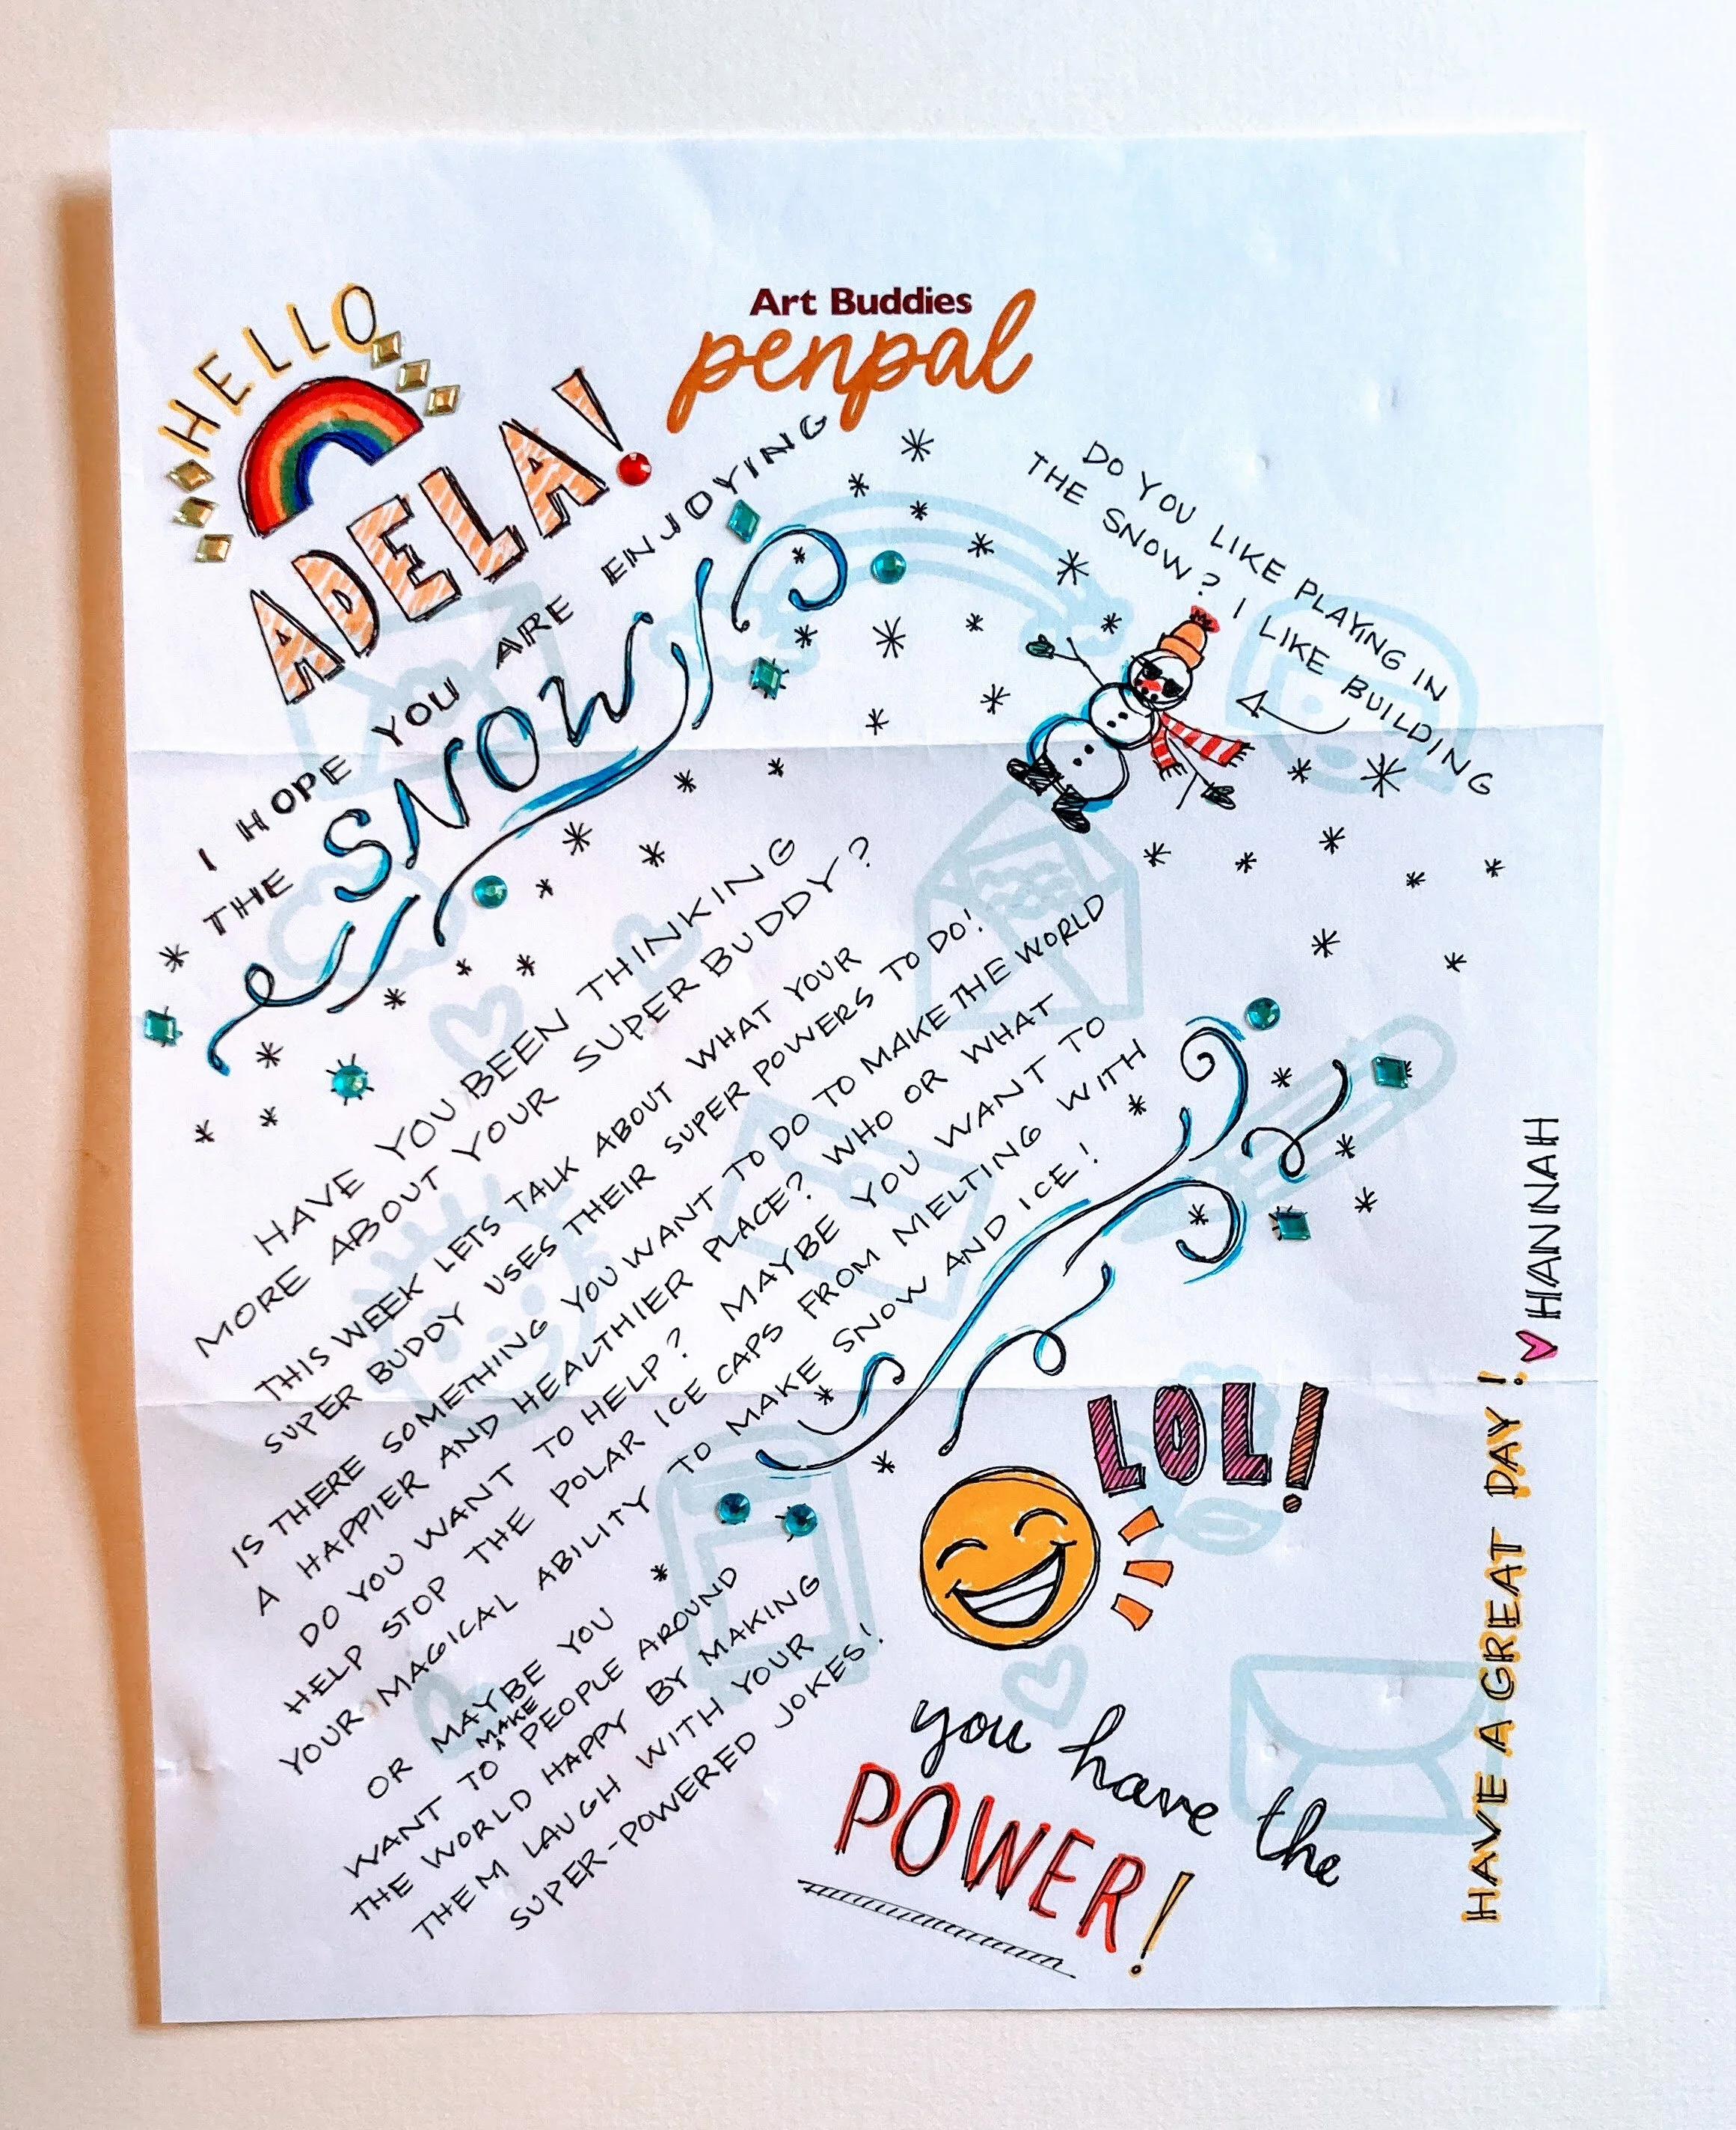 Art Buddies
penpal
HELLO
ADELA!
I HOPE YOU ARE ENJOYING
THE SNOW
DO YOU LIKE PLAYING IN
THE SNOW? I LIKE BUILDING
HAVE YOU BEEN THINKING
MORE ABOUT YOUR SUPER BUDDY?
THIS WEEK LETS TALK ABOUT WHAT YOUR
SUPER BUDDY USES THEIR SUPER POWERS TO DO!
IS THERE SOMETHING YOU WANT TO DO TO MAKE THE WORLD
A HAPPIER AND HEALTHIER PLACE? WHO OR WHAT
DO YOU WANT TO HELP? MAYBE YOU WANT TO
HELP STOP THE POLAR ICE CAPS FROM MELTING WITH
YOUR MAGICAL ABILITY TO MAKE SNOW AND ICE!
OR MAYBE YOU
WANT TO MAKE PEOPLE AROUND
THE WORLD HAPPY BY MAKING
THEM LAUGH WITH YOUR
SUPER-POWERED JOKES!
LOL!
you have the
POWER!
HAVE A GREAT DAY!
HANNAH